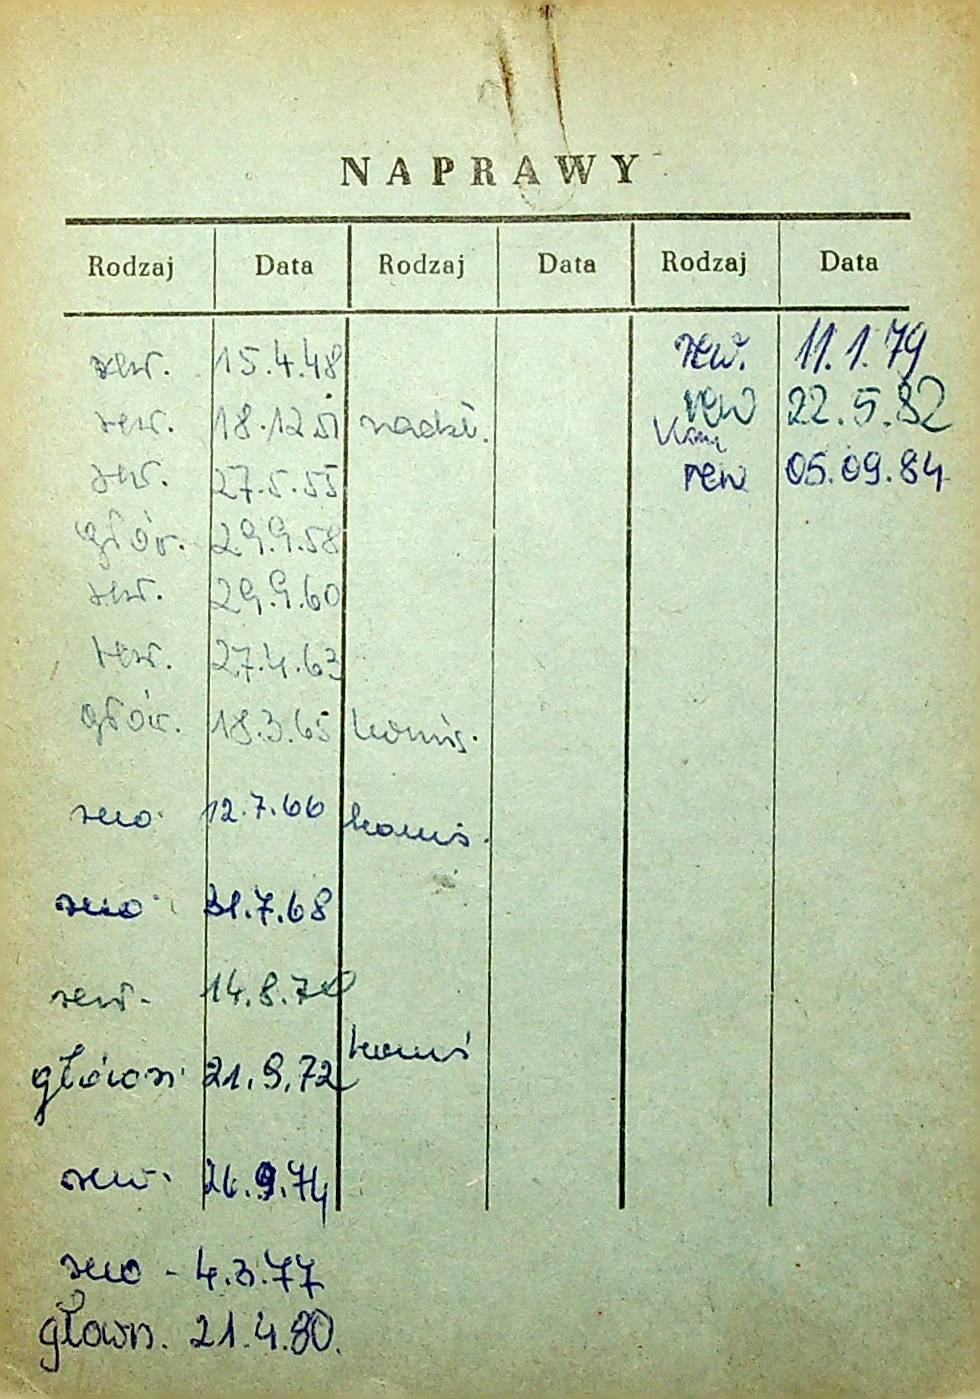 NAPRAWY
Rodzaj Data Rodzaj Data Rodzaj Data
rew. 15.4.48 rew. 11.1.79
rew. 18.12.51 nadzi. rew 22.5.82
rew. 27.5.55 rew 05.09.84
głów. 29.9.58
rew. 29.9.60
rew. 27.4.63
głów. 18.3.65 komis.
rew. 12.7.66 komis.
rew. 31.7.68
rew. 14.8.70
główn. 21.9.72 komis
rew. 26.9.74
rew - 4.3.77
główn. 21.4.80.